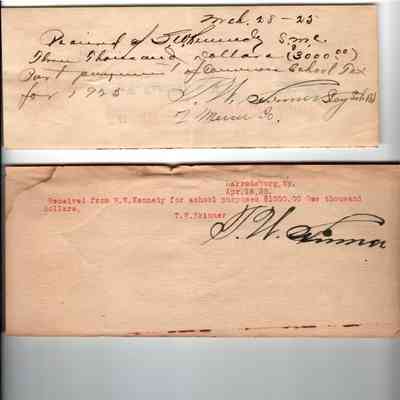 Mch. 28 - 25
Received of Kennedy S.M.C.
Three Thousand Dollars (3000.00)
Part payment of Common School Tax
for 1925 T. W. Skinner
Mercer Co.
Harrodsburg, Ky.
Apr. 18, 25.
Received from W.W.Kennedy for school purposes $1000.00 One thousand
dollars,
T.W.Skinner
T. W. Skinner